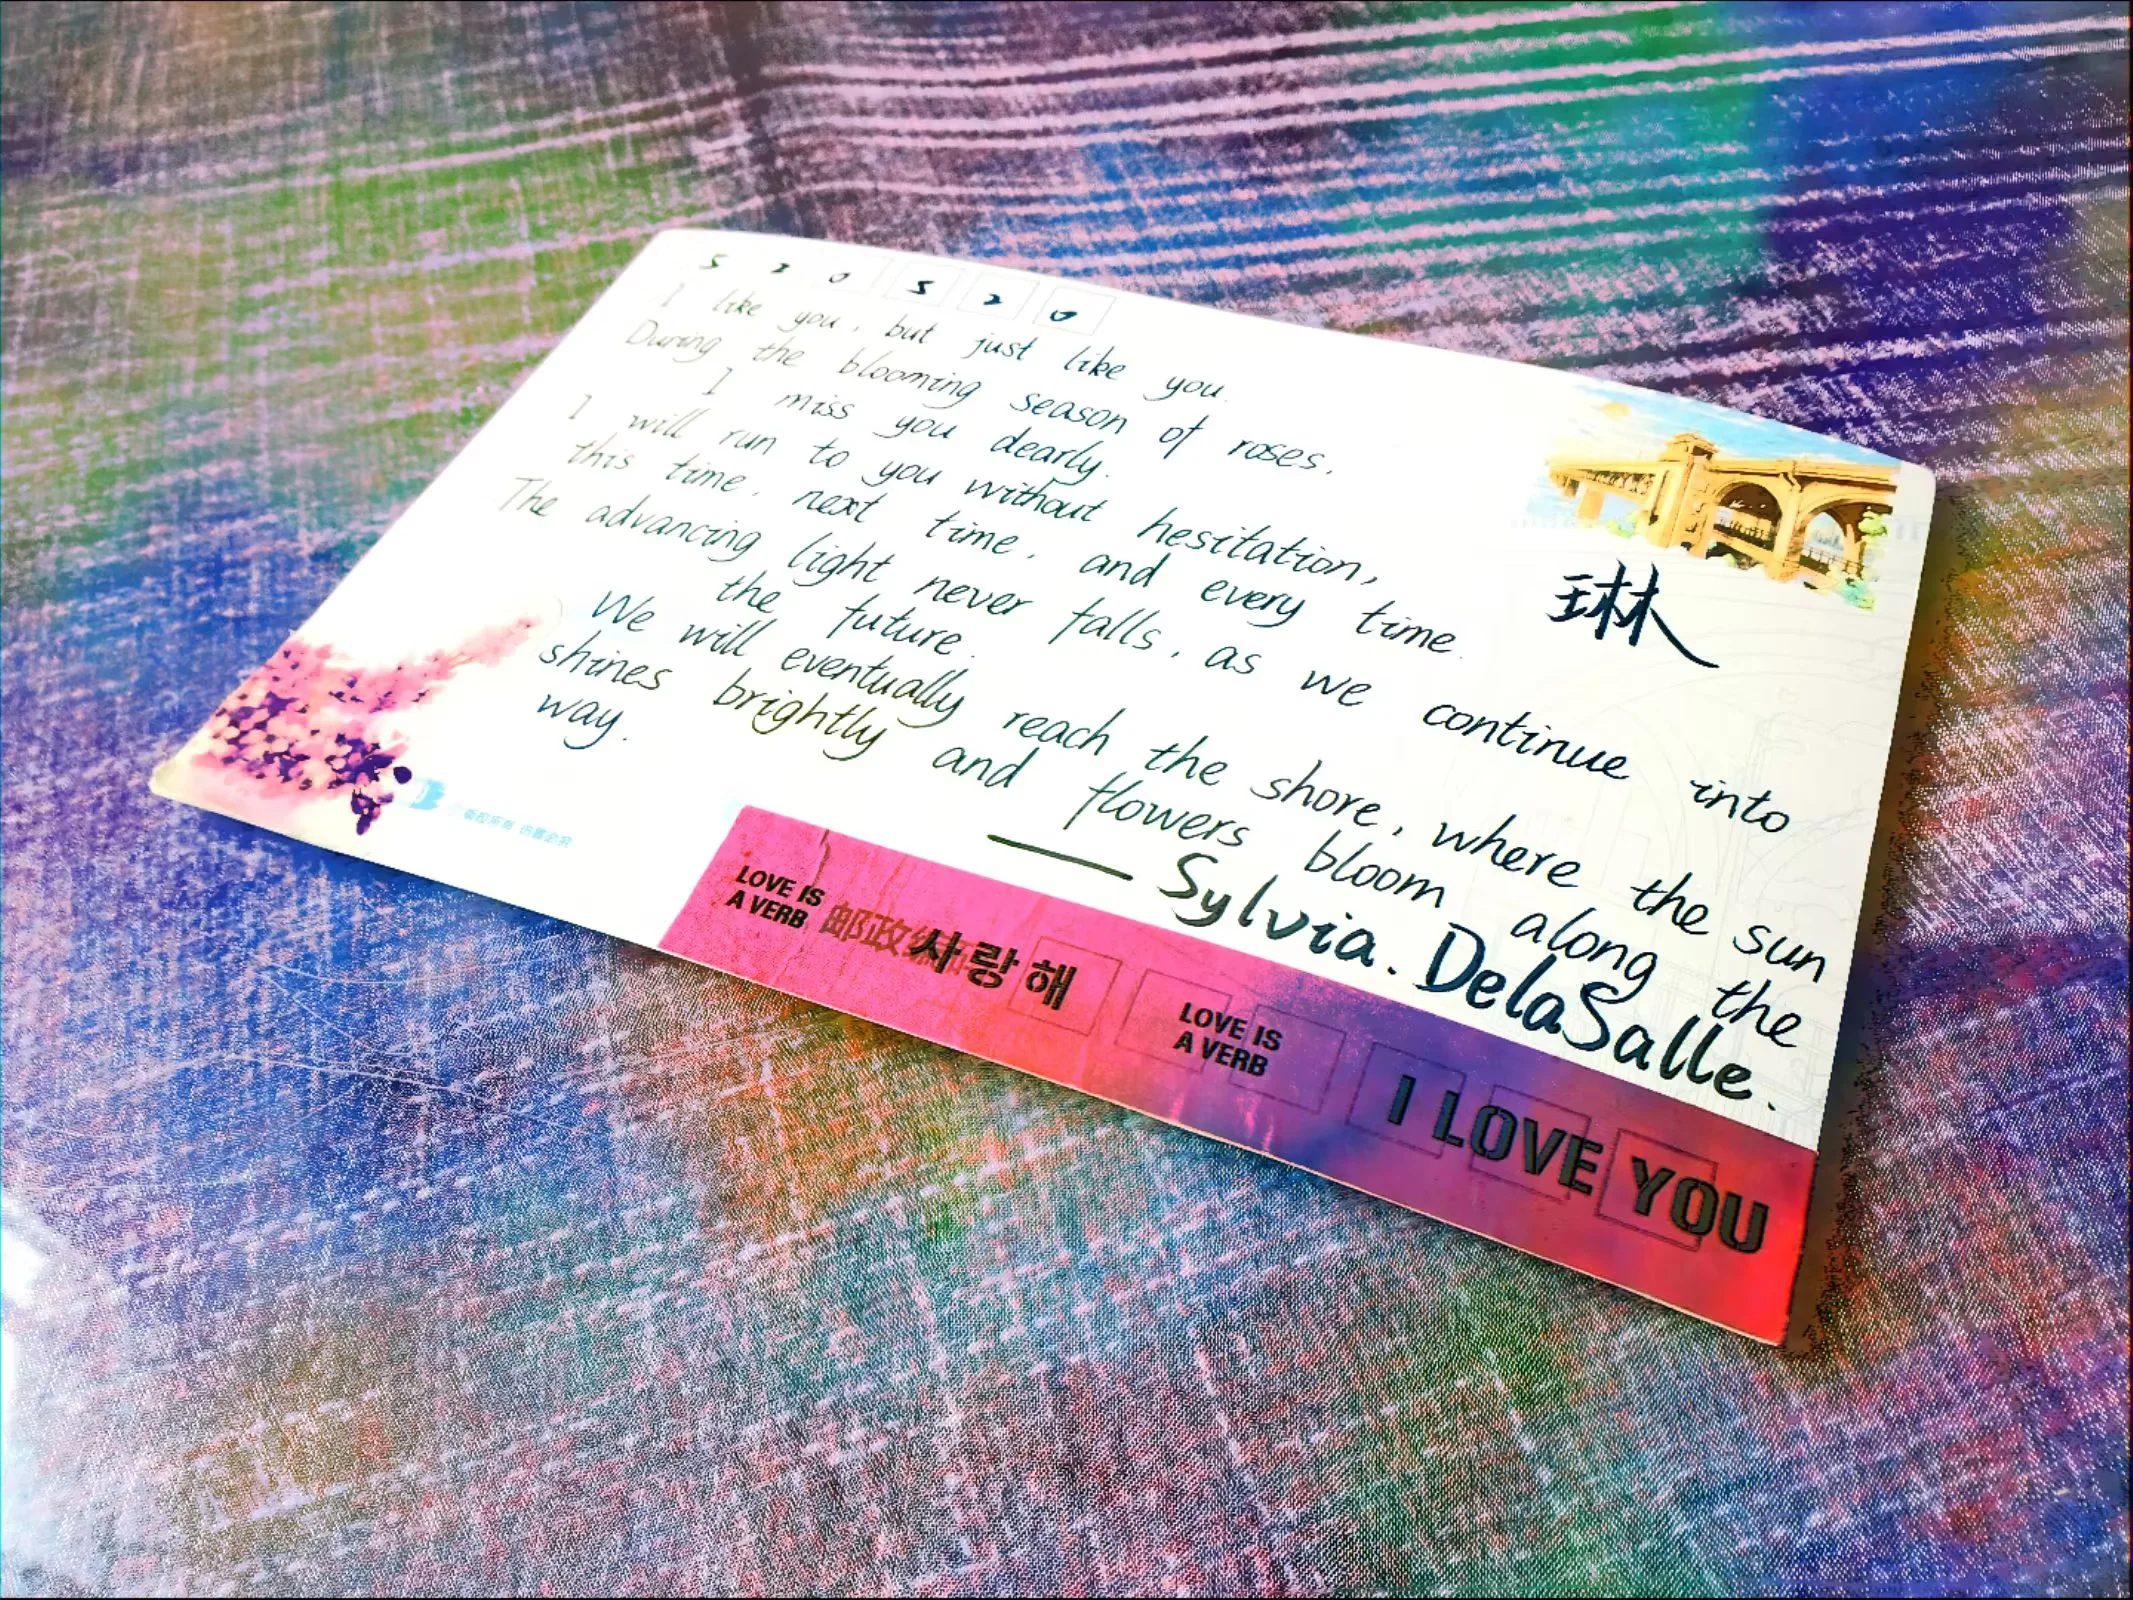 5 2 0 5 2 0
I like you, but just like you.
During the blooming season of roses,
I miss you dearly.
I will run to you without hesitation,
this time, next time, and every time.
The advancing light never falls, as we continue into
the future.
We will eventually reach the shore, where the sun
shines brightly and flowers bloom along the
way.
—— Sylvia. DelaSalle.
琳
版权所有 仿冒必究
LOVE IS
A VERB
邮政编
사랑해
LOVE IS
A VERB
I LOVE YOU